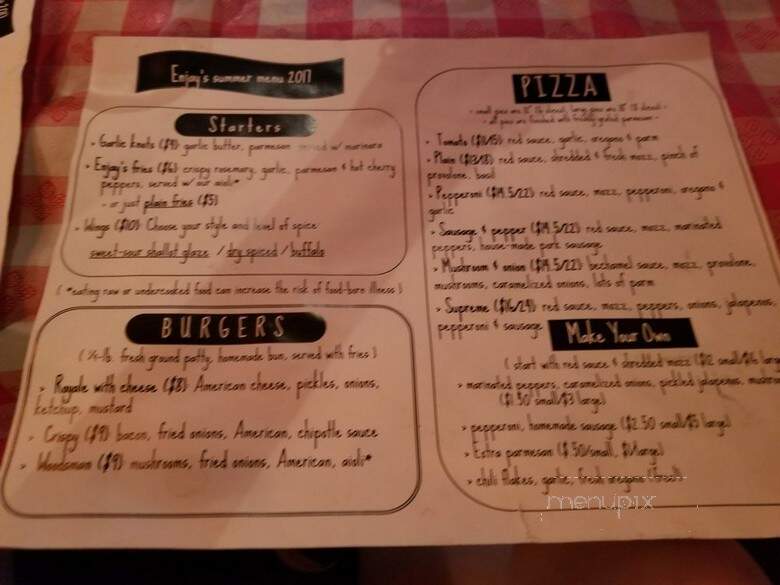 Enjay's summer menu 2017
Starters
▸ Garlic knots ($4) garlic butter, parmesan served w/ marinara
▸ Enjay's fries ($6) crispy rosemary, garlic, parmesan & hot cherry
peppers, served w/ our aioli*
- or just plain fries ($5)
▸ Wings ($10) Choose your style and level of spice
sweet-sour shallot glaze / dry spiced / buffalo
( *eating raw or undercooked food can increase the risk of food-born illness )
BURGERS
( ¼-lb. fresh ground patty, homemade bun, served with fries )
▸ Royale with cheese ($8) American cheese, pickles, onions,
ketchup, mustard
▸ Crispy ($9) bacon, fried onions, American, chipotle sauce
▸ Woodsman ($9) mushrooms, fried onions, American, aioli*
PIZZA
- small pies are 12" (6 slices), large pies are 18" (8 slices) -
- all pies are finished with freshly grated parmesan -
▸ Tomato ($11/15) red sauce, garlic, oregano & parm
▸ Plain ($13/18) red sauce, shredded & fresh mozz, pinch of
provolone, basil
▸ Pepperoni ($14.5/22) red sauce, mozz, pepperoni, oregano &
garlic
▸ Sausage & pepper ($14.5/22) red sauce, mozz, marinated
peppers, house-made pork sausage
▸ Mushroom & onion ($14.5/22) bechamel sauce, mozz, provolone,
mushrooms, caramelized onions, lots of parm
▸ Supreme ($16/24) red sauce, mozz, peppers, onions, jalapenos,
pepperoni & sausage
Make Your Own
( start with red sauce & shredded mozz ($12 small/$16
▸ marinated peppers, caramelized onions, pickled jalapenos,
($1.50 small/$3 large)
▸ pepperoni, homemade sausage ($2.50 small/$5 large)
▸ Extra parmesan ($.50/small, $1/large)
▸ chili flakes, garlic, fresh oregano (free!)
menupix